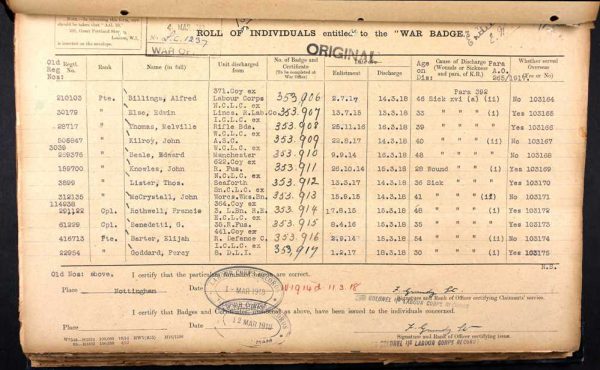 should be taken that "Act. 50."
255, Great Portland Street,
London, W.1
is inserted on the envelope.
ROLL OF INDIVIDUALS entitled to the "WAR BADGE."
No. 1237
WAR OF
ORIGINAL
Old Reg Nos: Regtl. No. Rank Name (in full) Unit discharged from No. of Badge and Certificate (To be completed at War Office) Enlistment Discharge Age on Dis: Cause of Discharge (Wounds or Sickness and para. of K.R.) Para A.O. 265/1917 Whether served Overseas (Yes or No)
371.Coy ex Para 392
210103 Pte. Billings, Alfred Labour Corps 353,906 2.7.17 14.3.18 46 Sick xvi (a) (ii) No 103164
H.C.L.C. ex
30179 " Else, Edwin Lincs. R.Lab.Co. 353,907 13.7.15 13.3.18 33 " " " (i) Yes 103165
W.C.L.C. ex
28717 " Thomas, Melville Rifle Bde. 353,908 25.11.16 16.3.18 39 " " " " Yes 103166
W.C.L.C. ex
506847 " Kilroy, John A.S.C. 353,909 22.2.17 14.3.18 40 " " " (ii) No 103167
3039 N.C.L.C. ex
259376 " Beale, Edward Manchester 353,910 9.9.14 16.3.18 48 " " " " No 103168
622.Coy ex
189700 " Knowles, John R. Fus. 353,911 26.10.14 16.3.18 28 Wound " " (i) Yes 103169
N.C.L.C. ex
3899 " Lister, Thos. Seaforth 353,912 13.3.17 16.3.18 36 Sick " " " Yes 103170
Sn.C.L.C. ex
312135 " McCrystall, John Worcs.Wks.Bn. 353,913 15.8.15 16.3.18 41 " " " (ii) No 103171
114938 364.Coy ex
291122 Cpl. Rothwell, Francis S. L.Bn. R.E. 353,914 17.8.15 14.3.18 48 " " " (i) Yes 103172
E.C.L.C. ex
61299 Cpl. Benedetti, G. 35.R.Fus. 353,915 5.5.16 14.3.18 45 " " " " Yes 103173
441.Coy ex
416713 Pte. Barter, Elijah R. Defence C. 353,916 2.9.14 16.3.18 54 " " " (ii) No 103174
I.C.L.C. ex
22954 " Goddard, Percy 8. D.L.I. 353,917 1.2.17 16.3.18 30 " " " (i) Yes 103175
N.S.
Old Nos: above. I certify that the particulars are correct.
Place Nottingham Date 11.3.18
LABOUR CORPS RECORDS
1 - MAR 1918
Signature and Rank of Officer certifying Claimants' service.
COLONEL I/c LABOUR CORPS RECORDS
I certify that Badges and Certificates as above, have been issued to the individuals concerned.
Place Date
12 MAR 1918
Signature and Rank of Officer certifying issue.
COLONEL I/c LABOUR CORPS RECORDS